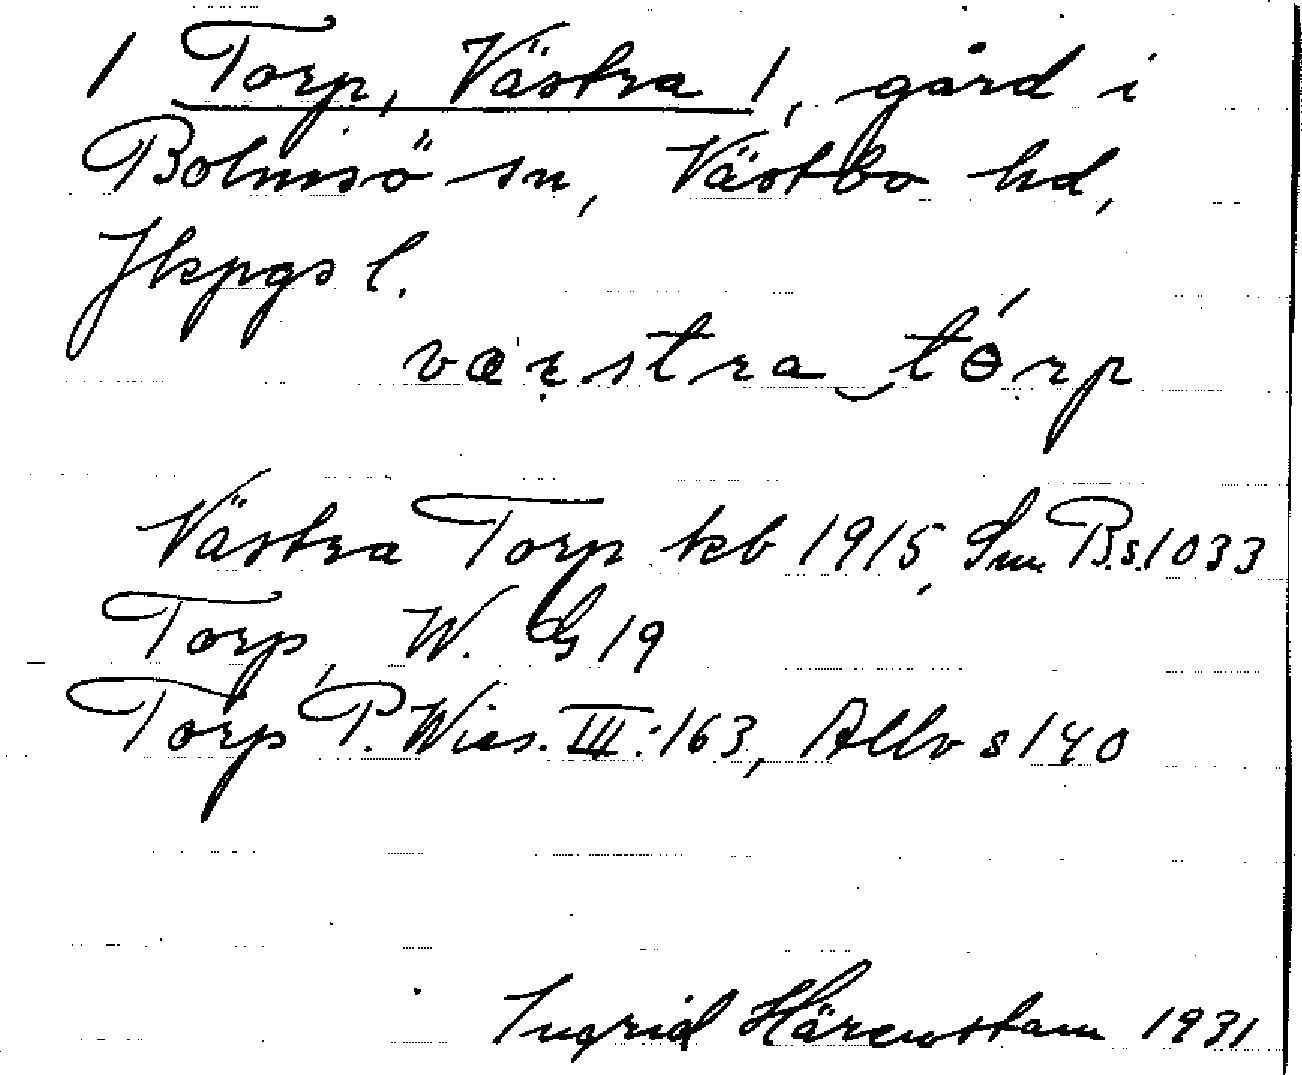 1 Torp, Västra 1, gård i
Bolmsö sn, Västbo hd,
Jkpgs l.
væstra tɵrp
Västra Torp kb 1915, Sm Bs. 1033
Torp, W. GS 19
Torp P. Wies. III:163, Allv s 140
Ingrid Härenstam 1931